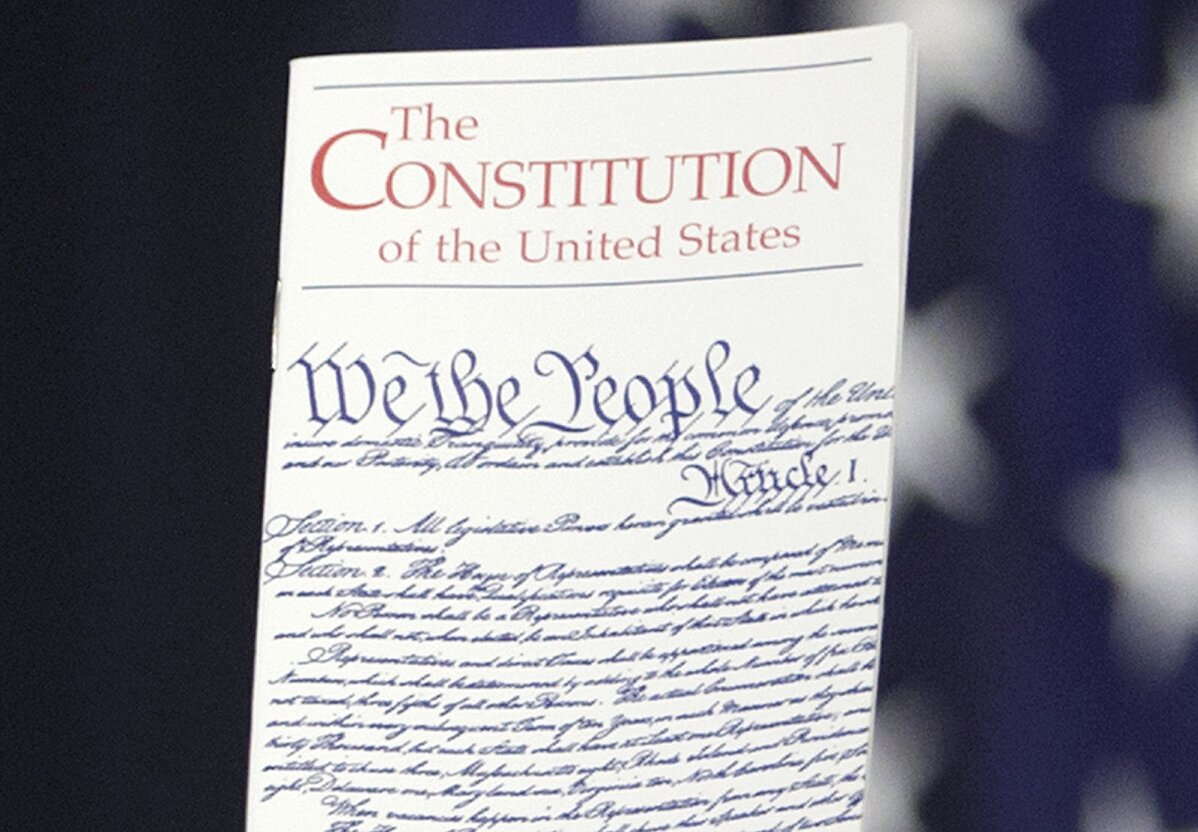 The
CONSTITUTION
of the United States
We the People of the Unit
insure domestic Tranquility, provide for the common defence, promo
and our Posterity, do ordain and establish this Constitution for the U
Article I.
Section 1. All legislative Powers herein granted shall be vested in
of Representatives.
Section 2. The House of Representatives shall be composed of Mem
in each State shall have Qualifications requisite for Electors of the most numerous
No Person shall be a Representative who shall not have attained to
and who shall not, when elected, be an Inhabitant of that State in which he
Representatives and direct Taxes shall be apportioned among the several
Numbers, which shall be determined by adding to the whole Number of free
not taxed, three fifths of all other Persons. The actual Enumeration shall be
and within every subsequent Term of ten Years, in such Manner as they shall
thirty Thousand, but each State shall have at Least one Representative; and
entitled to chuse three, Massachusetts eight, Rhode Island and Providence
eight, Delaware one, Maryland six, Virginia ten, North Carolina five,
When vacancies happen in the Representation from any State, the
The shall chuse their Speaker and other